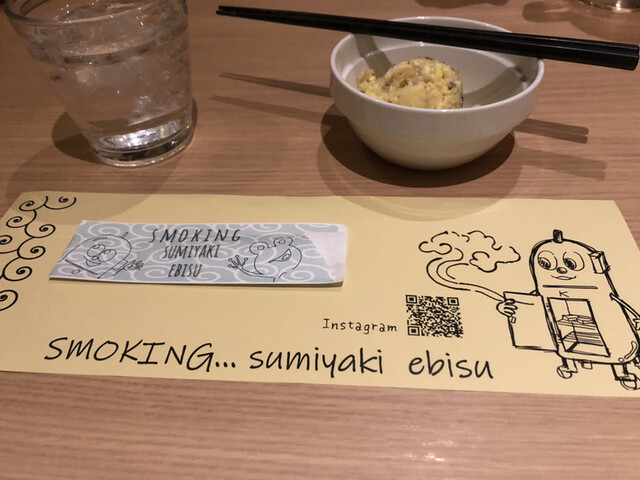 SMOKING
SUMIYAKI
EBISU
Instagram
SMOKING... sumiyaki ebisu